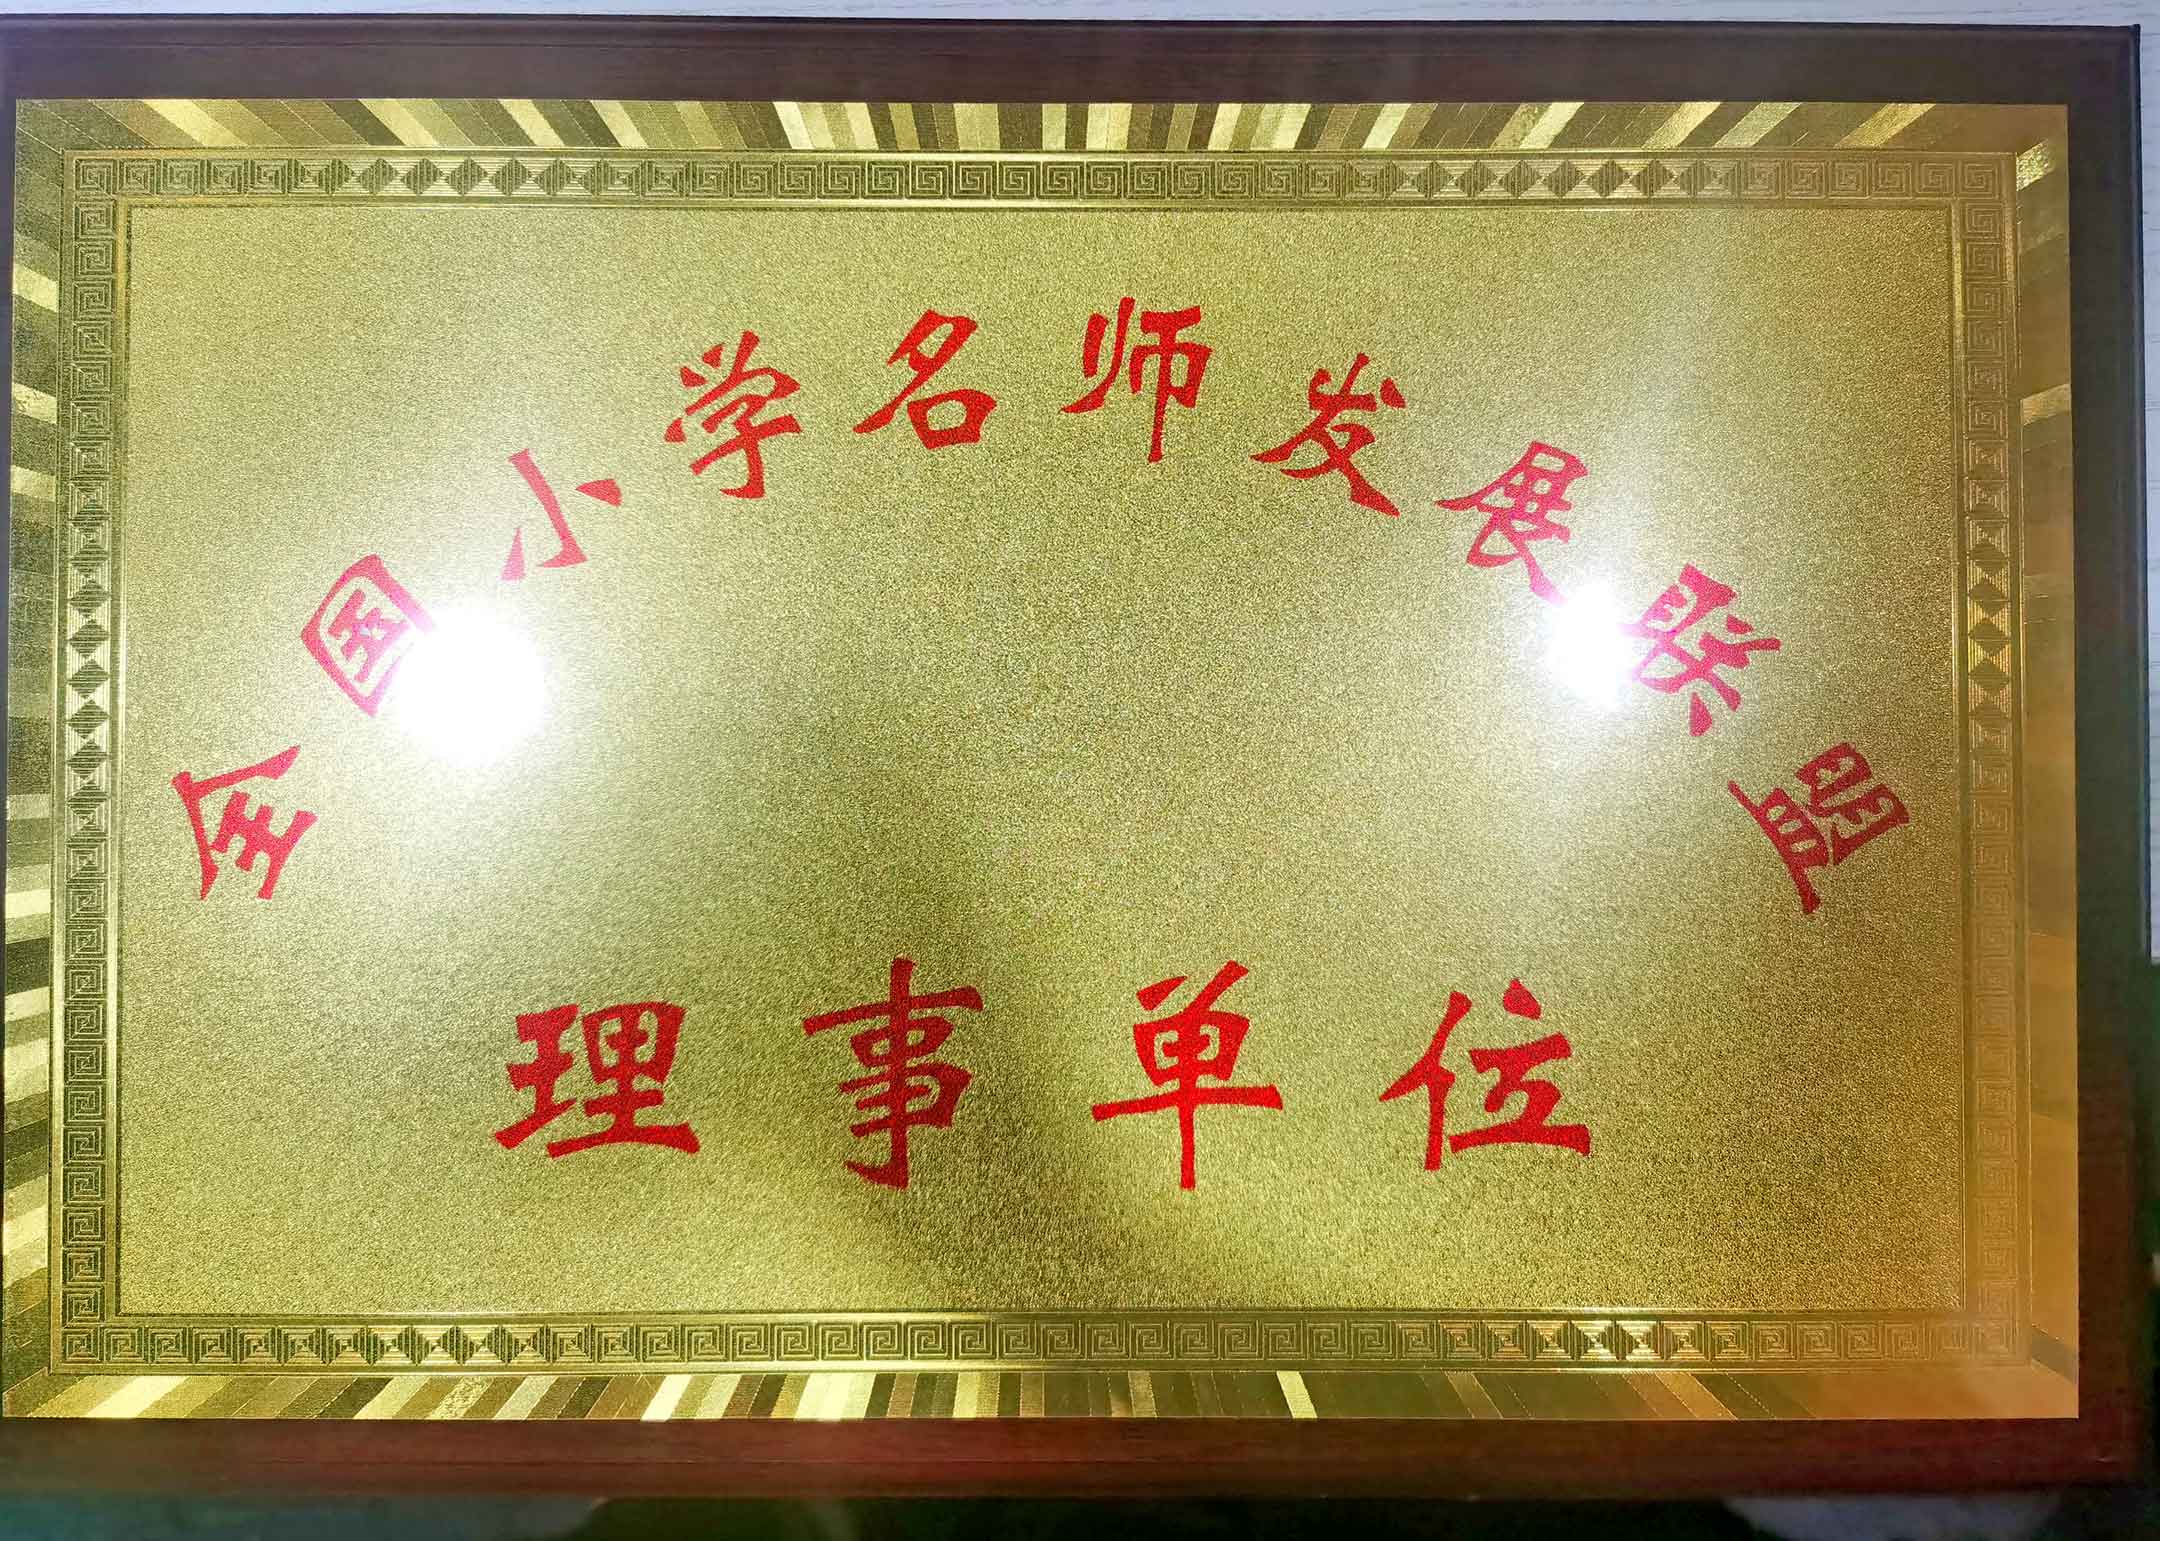 全国小学名师发展联盟
理事单位